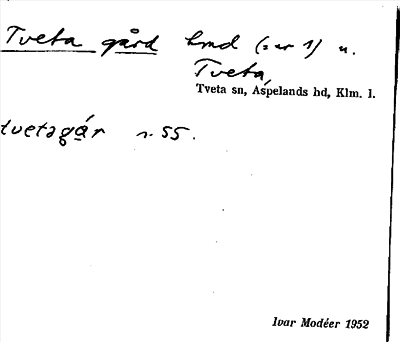 Tveta gård hmd (= nr 1) u.
Tveta,
Tveta sn, Aspelands hd, Klm. l.
tvetagár n. 55.
Ivar Modéer 1952